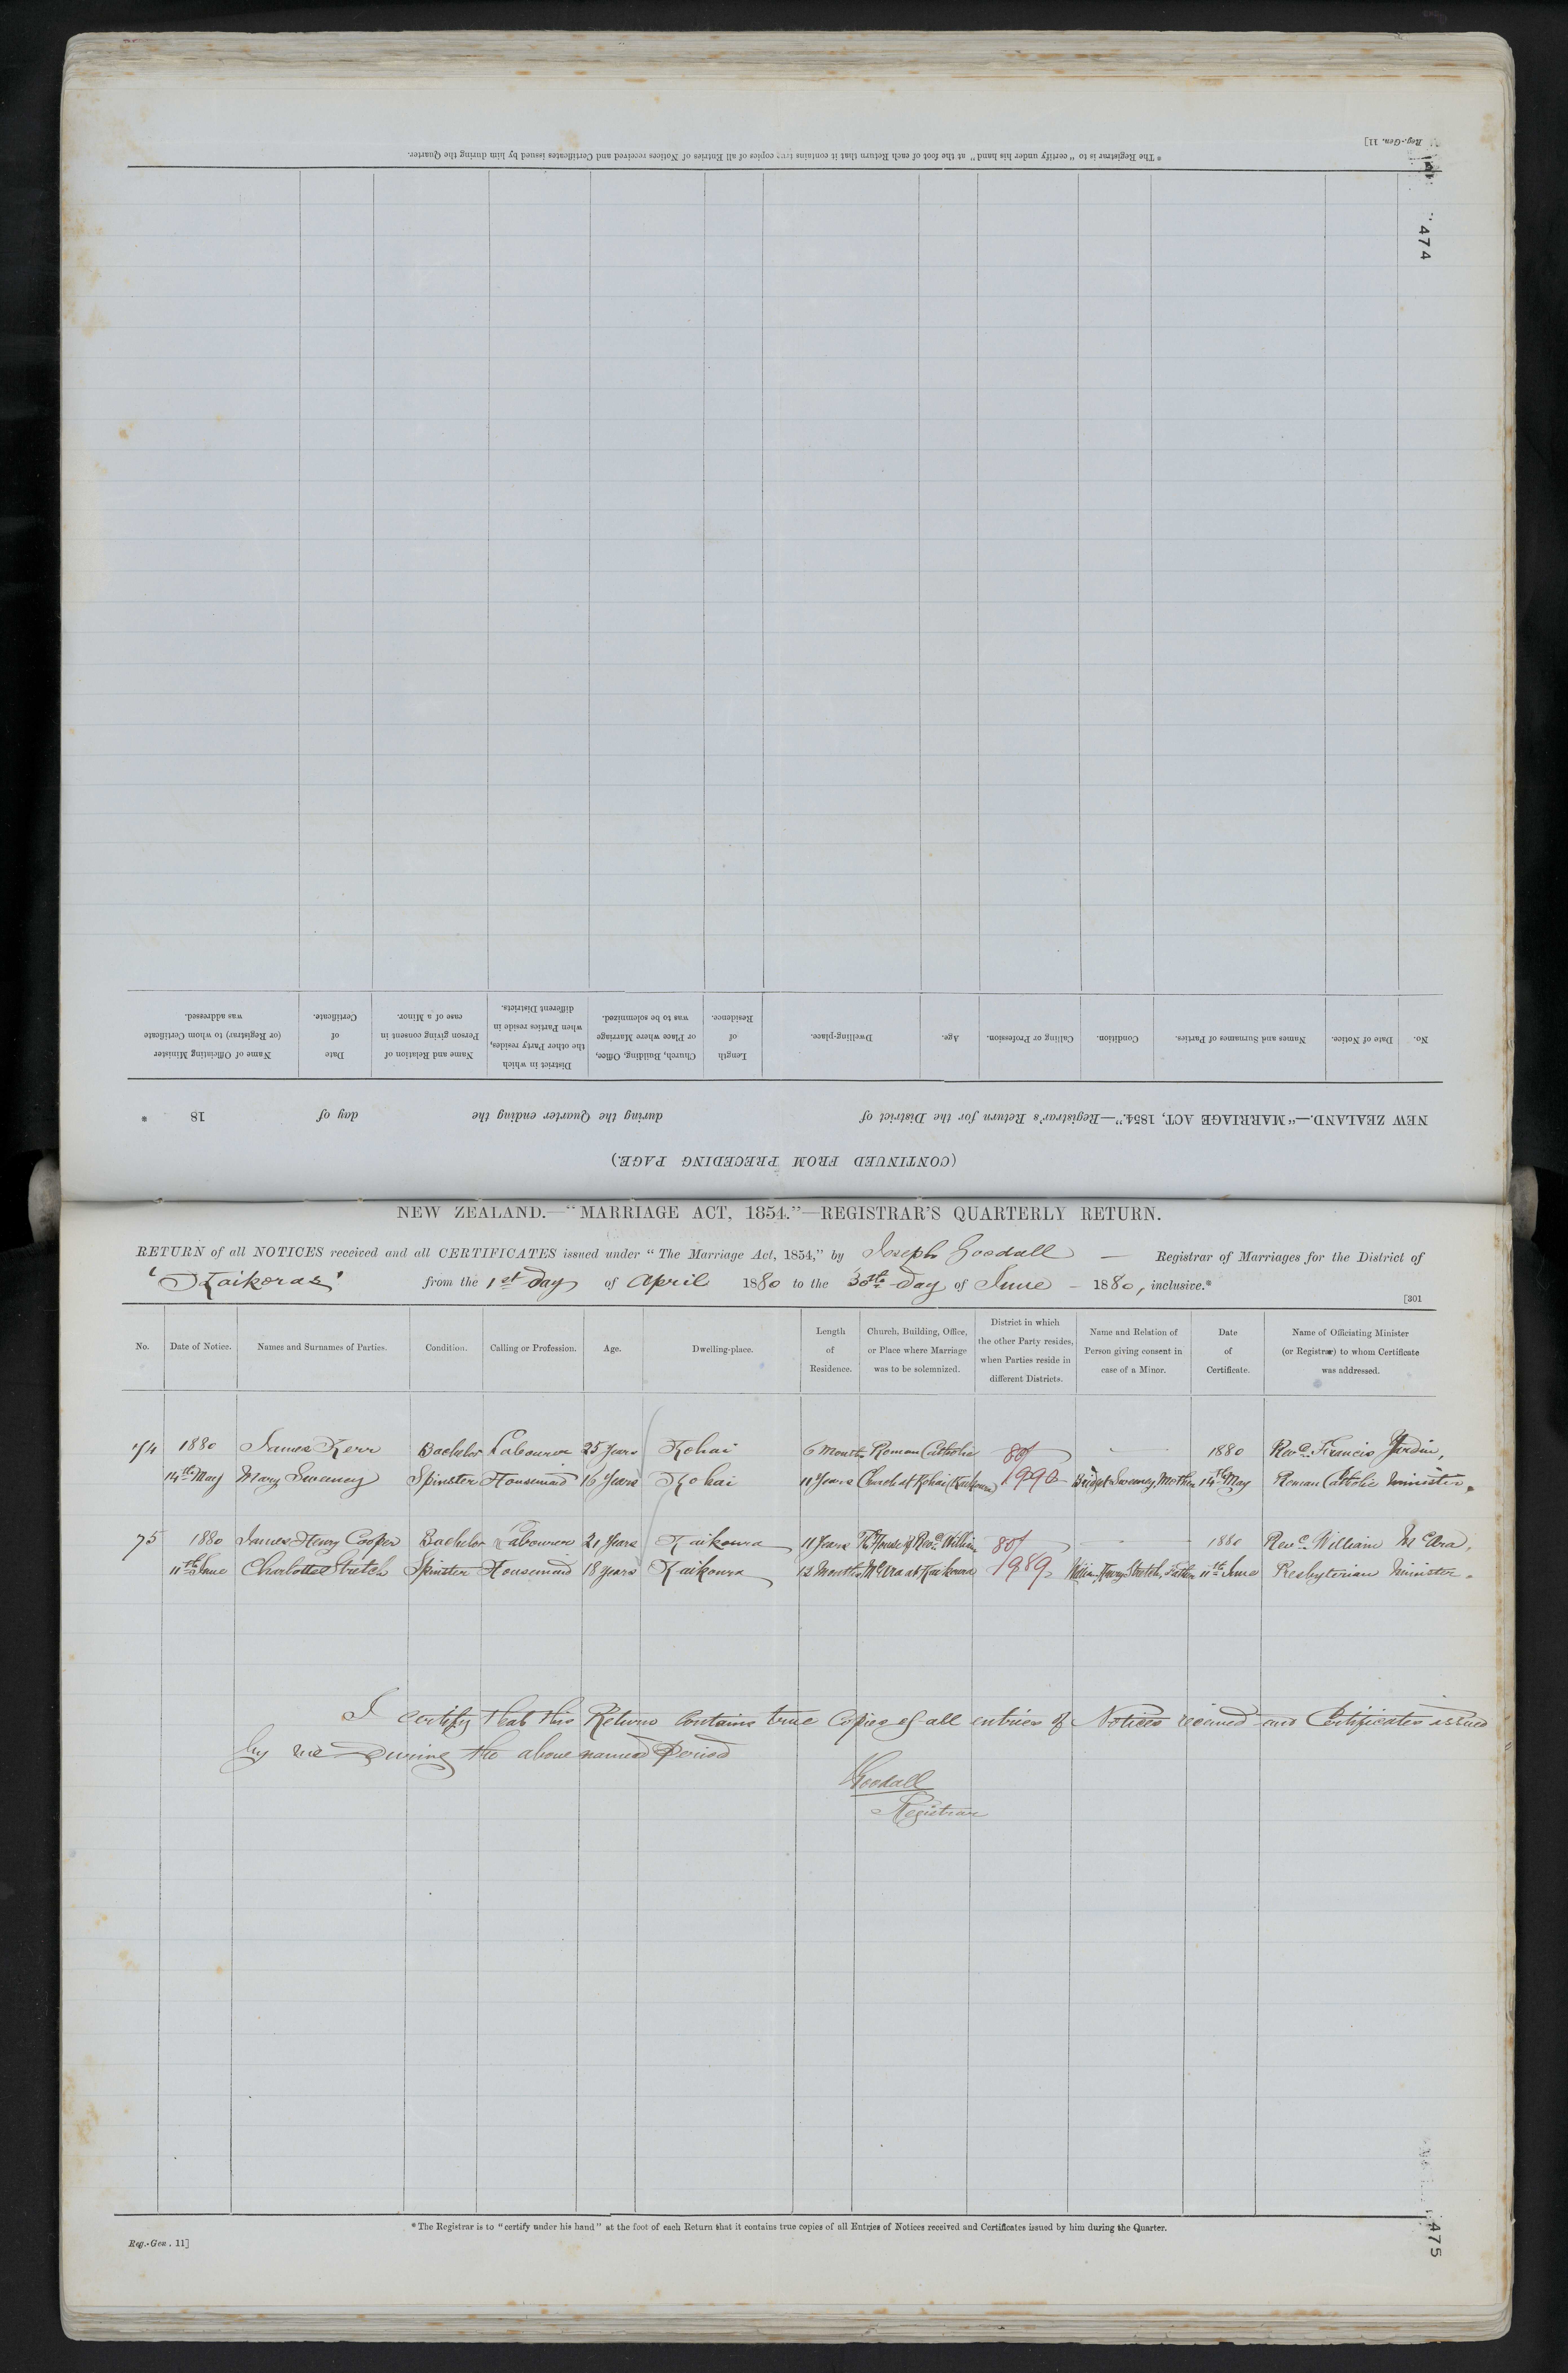 Reg.-Gen. 11]
* The Registrar is to "certify under his hand" at the foot of each Return that it contains true copies of all Entries of Notices received and Certificates issued by him during the Quarter.
474
(CONTINUED FROM PRECEDING PAGE.)
NEW ZEALAND.—"MARRIAGE ACT, 1854."—Registrar's Return for the District of during the Quarter ending the day of 18 *
No. Date of Notice. Names and Surnames of Parties. Condition. Calling or Profession. Age. Dwelling-place. Length of Residence. Church, Building, Office, or Place where Marriage was to be solemnized. District in which the other Party resides, when Parties reside in different Districts. Name and Relation of Person giving consent in case of a Minor. Date of Certificate. Name of Officiating Minister (or Registrar) to whom Certificate was addressed.
NEW ZEALAND.—"MARRIAGE ACT, 1854."—REGISTRAR'S QUARTERLY RETURN.
RETURN of all NOTICES received and all CERTIFICATES issued under "The Marriage Act, 1854," by Joseph Goodall — Registrar of Marriages for the District of
'Kaikoras' from the 1st day of April 1880 to the 30th day of June - 1880, inclusive.*
[301
No. Date of Notice. Names and Surnames of Parties. Condition. Calling or Profession. Age. Dwelling-place. Length of Residence. Church, Building, Office, or Place where Marriage was to be solemnized. District in which the other Party resides, when Parties reside in different Districts. Name and Relation of Person giving consent in case of a Minor. Date of Certificate. Name of Officiating Minister (or Registrar) to whom Certificate was addressed.
74 1880 James Kerr Bachelor Labourer 25 Years Kohai 6 Months Roman Catholic 80/ - 1880 Revd. Francis
14th May Mary Sweeney Spinster Housemaid 16 Years Kohai 11 Years Church at Kohai (Kaikoura) 1990 Bridget Sweeney, Mother 14th May Roman Catholic Minister.
75 1880 James Henry Cooper Bachelor Labourer 21 Years Kaikoura 11 Years The House of Revd. William 80/ - 1880 Revd. William McAra,
11th June Charlotte Stretch Spinster Housemaid 18 years Kaikoura 12 Months McAra at Kaikoura 1989 William Henry Stretch, Father 11th June Presbyterian Minister.
I certify that this Return contains true copies of all entries of Notices received and Certificates issued
by me During the above named Period
Goodall
Registrar
* The Registrar is to "certify under his hand" at the foot of each Return that it contains true copies of all Entries of Notices received and Certificates issued by him during the Quarter.
Reg.-Gen. 11]
475